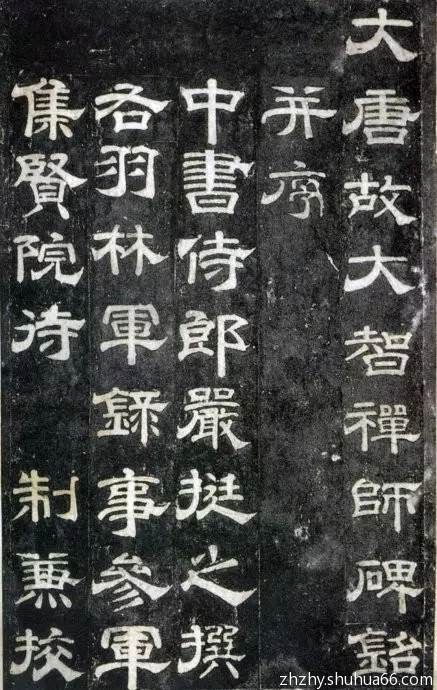 大唐故大智禪師碑銘
并序
中書侍郎嚴挺之撰
右羽林軍錄事參軍
集賢院待 制兼挍
zhzhy.shuhua66.com